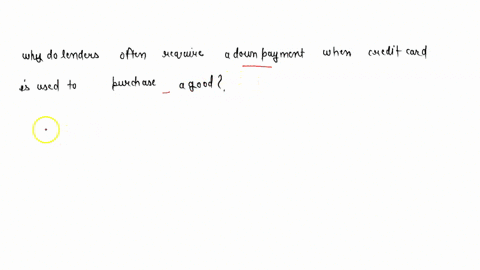 why do lenders often require a down payment when credit card
is used to purchase a good?